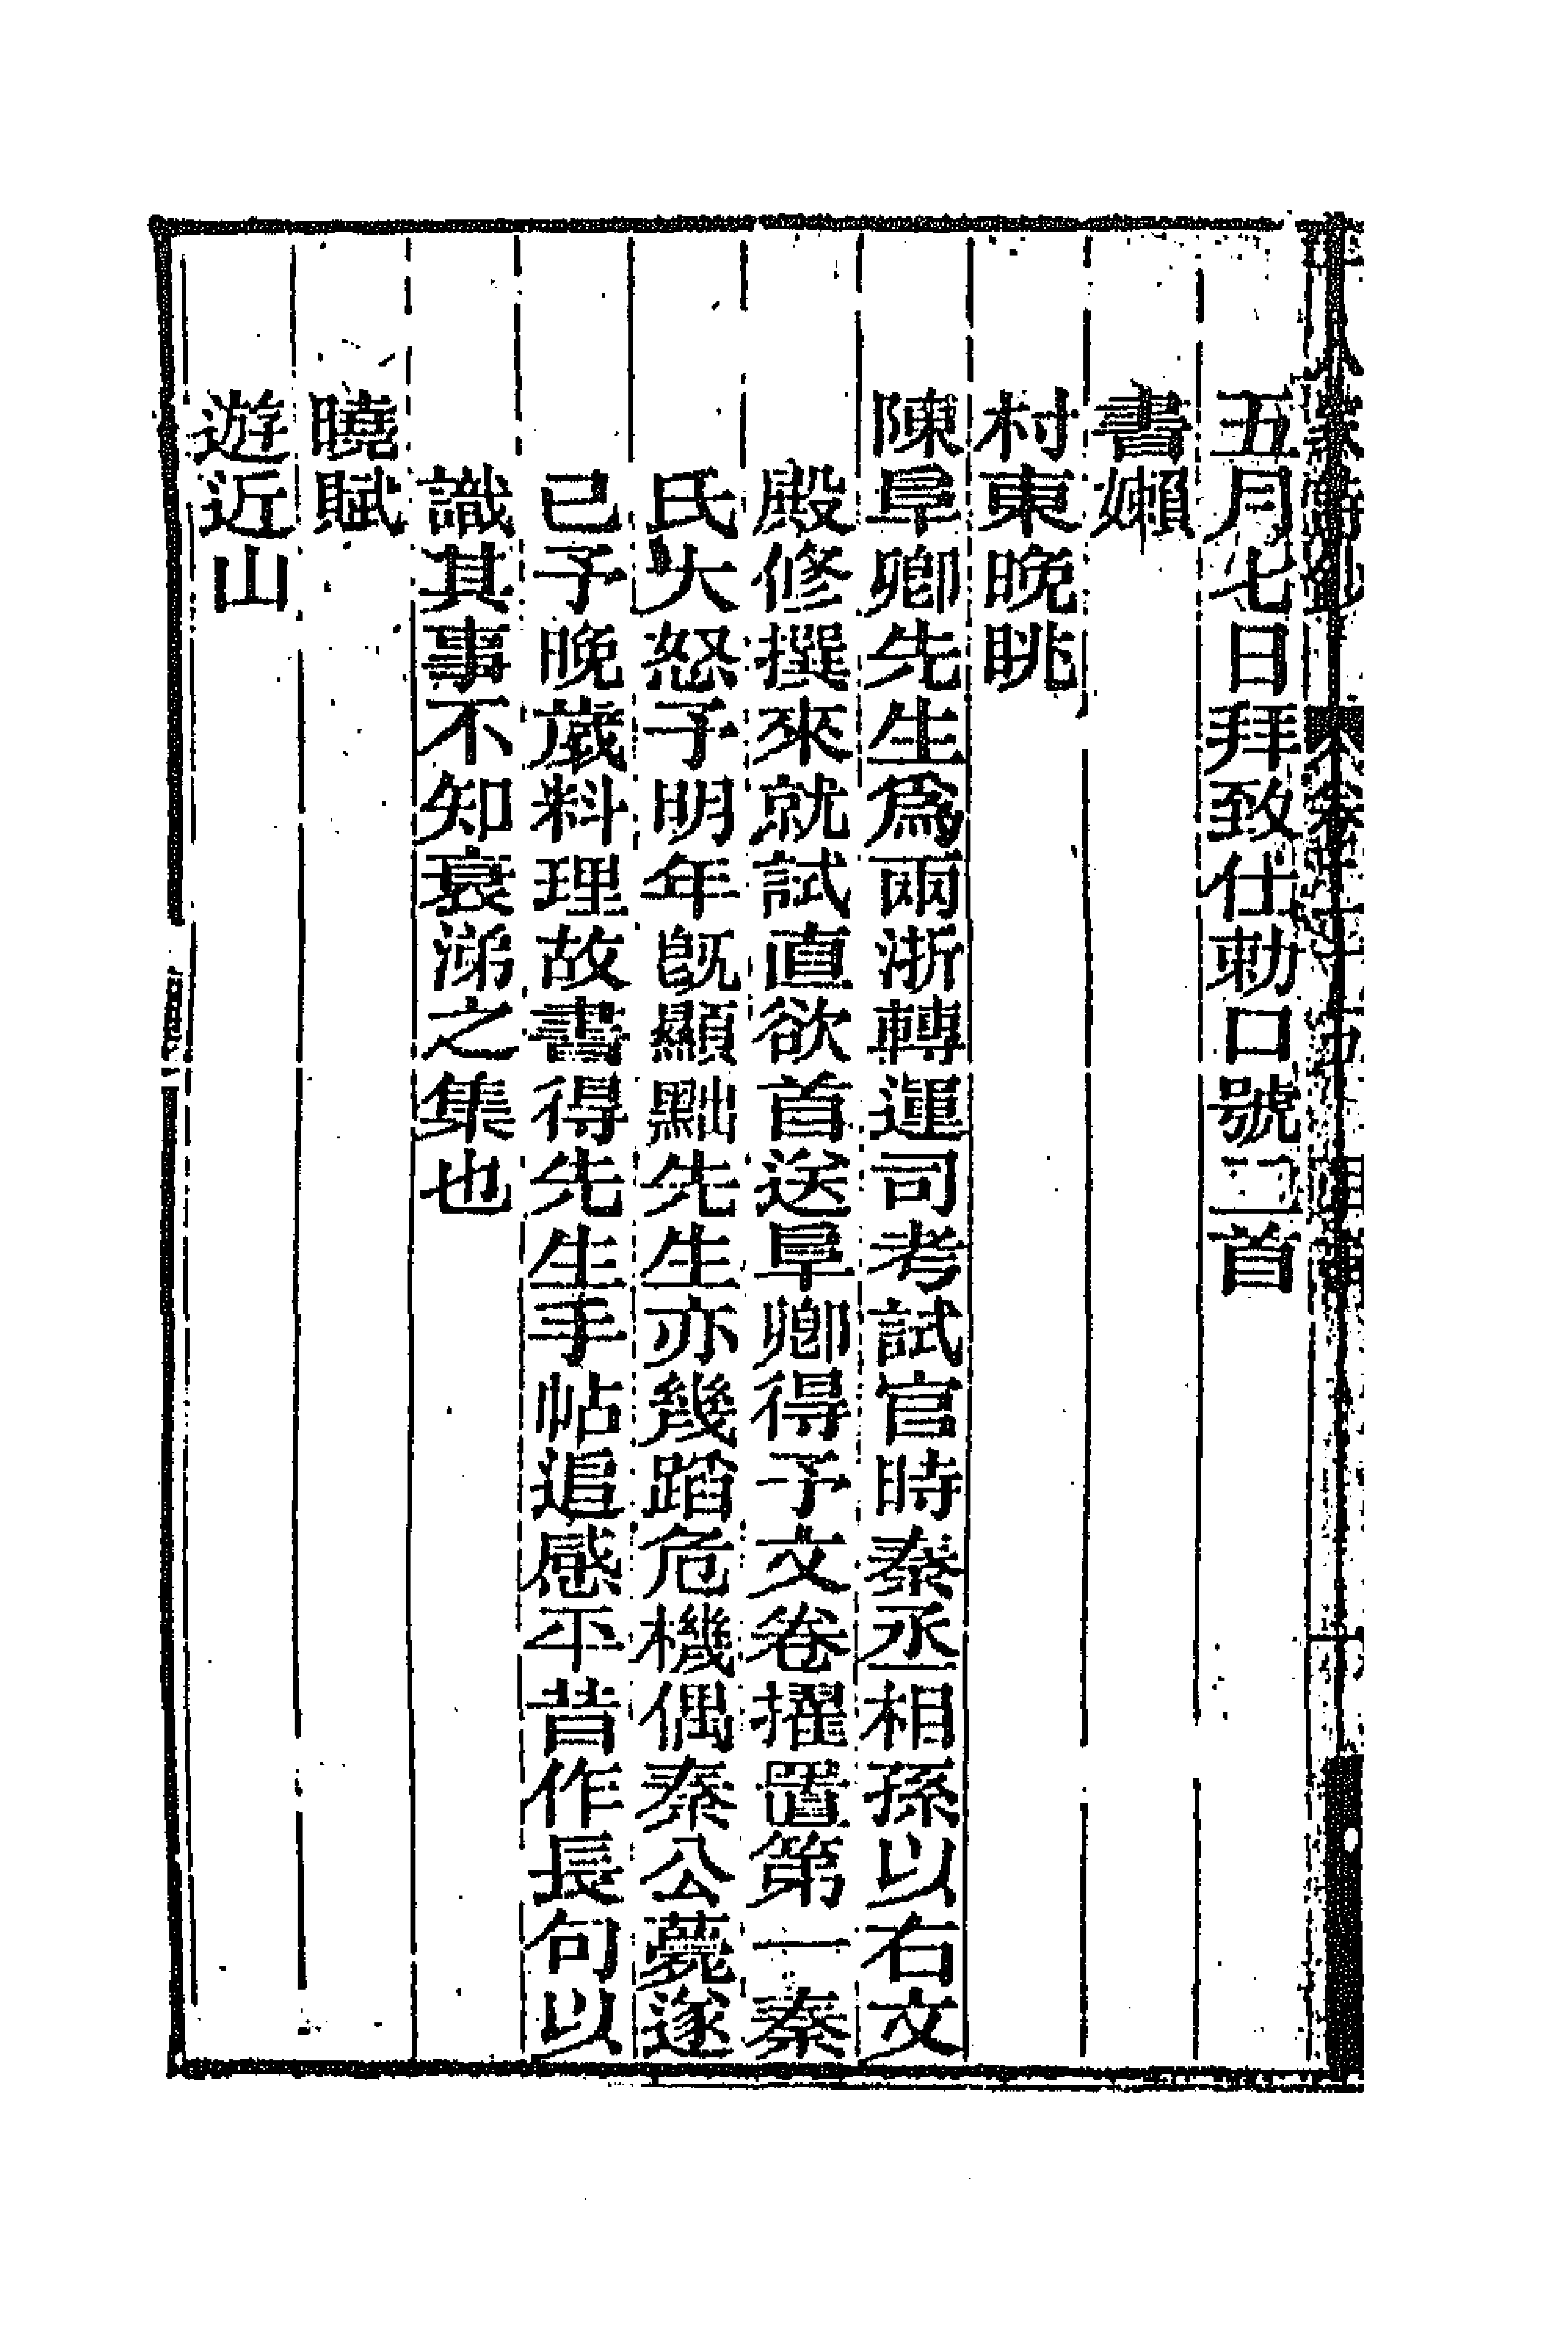 五月七日拜致仕勅口號二首
書嬾
村東晚眺
陳阜卿先生爲兩浙轉運司考試官時秦丞相孫以右文
殿修撰來就試直欲首送阜卿得予文卷擢置第一秦
氏大怒予明年旣顯黜先生亦幾蹈危機偶秦公薨遂
已予晚歲料理故書得先生手帖追感平昔作長句以
識其事不知衰涕之集也
曉賦
遊近山